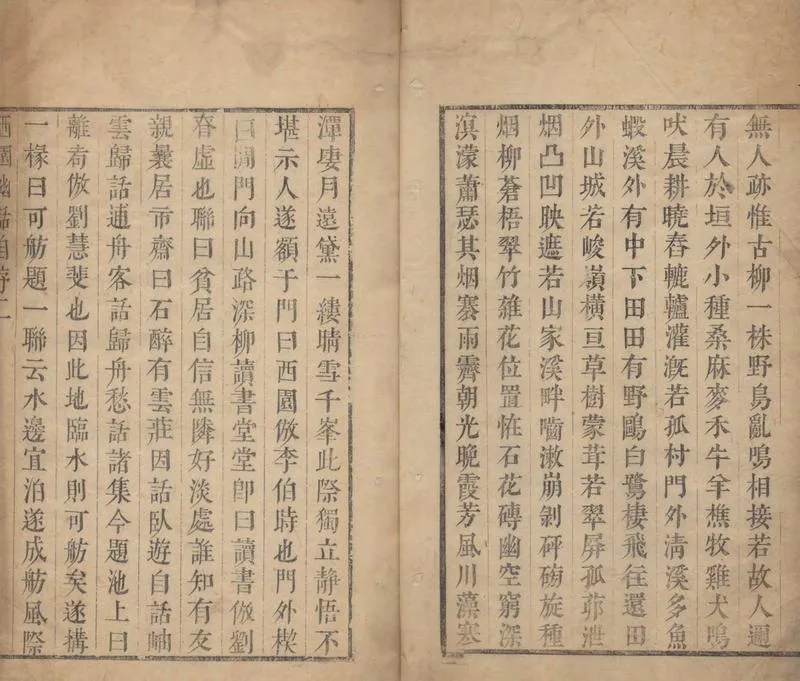 無人跡惟古柳一株野鳥亂鳴相接若故人邇
有人於垣外小種桑麻麥禾牛羊樵牧雞犬鳴
吠晨耕曉舂轆轤灌溉若孤村門外清溪多魚
蝦溪外有中下田田有野鷗白鷺棲飛往還田
外山城若峻嶺橫亘草樹蒙茸若翠屏孤茆泄
烟凸凹映遮若山家溪畔嚙漱崩剝砰磅旋種
烟柳蒼梧翠竹雜花位置恠石花磚幽空窮深
溟濛蕭瑟其烟寨雨霽朝光晚霞芳風川藻寒
潭淒月遠黛一縷晴雪千峯此際獨立靜悟不
堪示人遂額于門曰西園倣李伯時也門外楔
曰閒門向山路深柳讀書堂堂卽曰讀書倣劉
眘虛也聯曰貧居自信無隣好淡處誰知有友
親爨居市齋曰石醉有雲莊因話臥遊自話岫
雲歸話逋舟客話歸舟愁話諸集今題池上曰
離肴倣劉慧斐也因此地臨水則可舫矣遂搆
一椽曰可舫題一聯云水邊宜泊遂成舫風際
西園幽話自序二